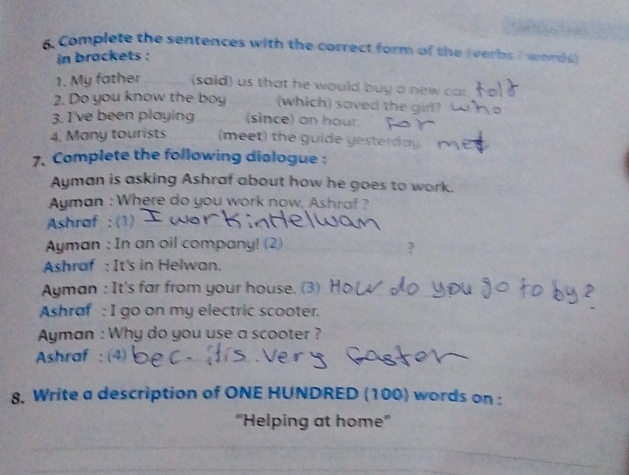 6. Complete the sentences with the correct form of the (verbs / words)
in brackets :
1. My father ........ (said) us that he would buy a new car. told
2. Do you know the boy ........ (which) saved the girl? who
3. I've been playing ........ (since) an hour. for
4. Many tourists ........ (meet) the guide yesterday. met
7. Complete the following dialogue :
Ayman is asking Ashraf about how he goes to work.
Ayman : Where do you work now, Ashraf ?
Ashraf : (1) I work in Helwan
Ayman : In an oil company! (2) ........ ?
Ashraf : It's in Helwan.
Ayman : It's far from your house. (3) How do you go to by?
Ashraf : I go on my electric scooter.
Ayman : Why do you use a scooter ?
Ashraf : (4) bec. it is very Gaster
8. Write a description of ONE HUNDRED (100) words on :
"Helping at home"